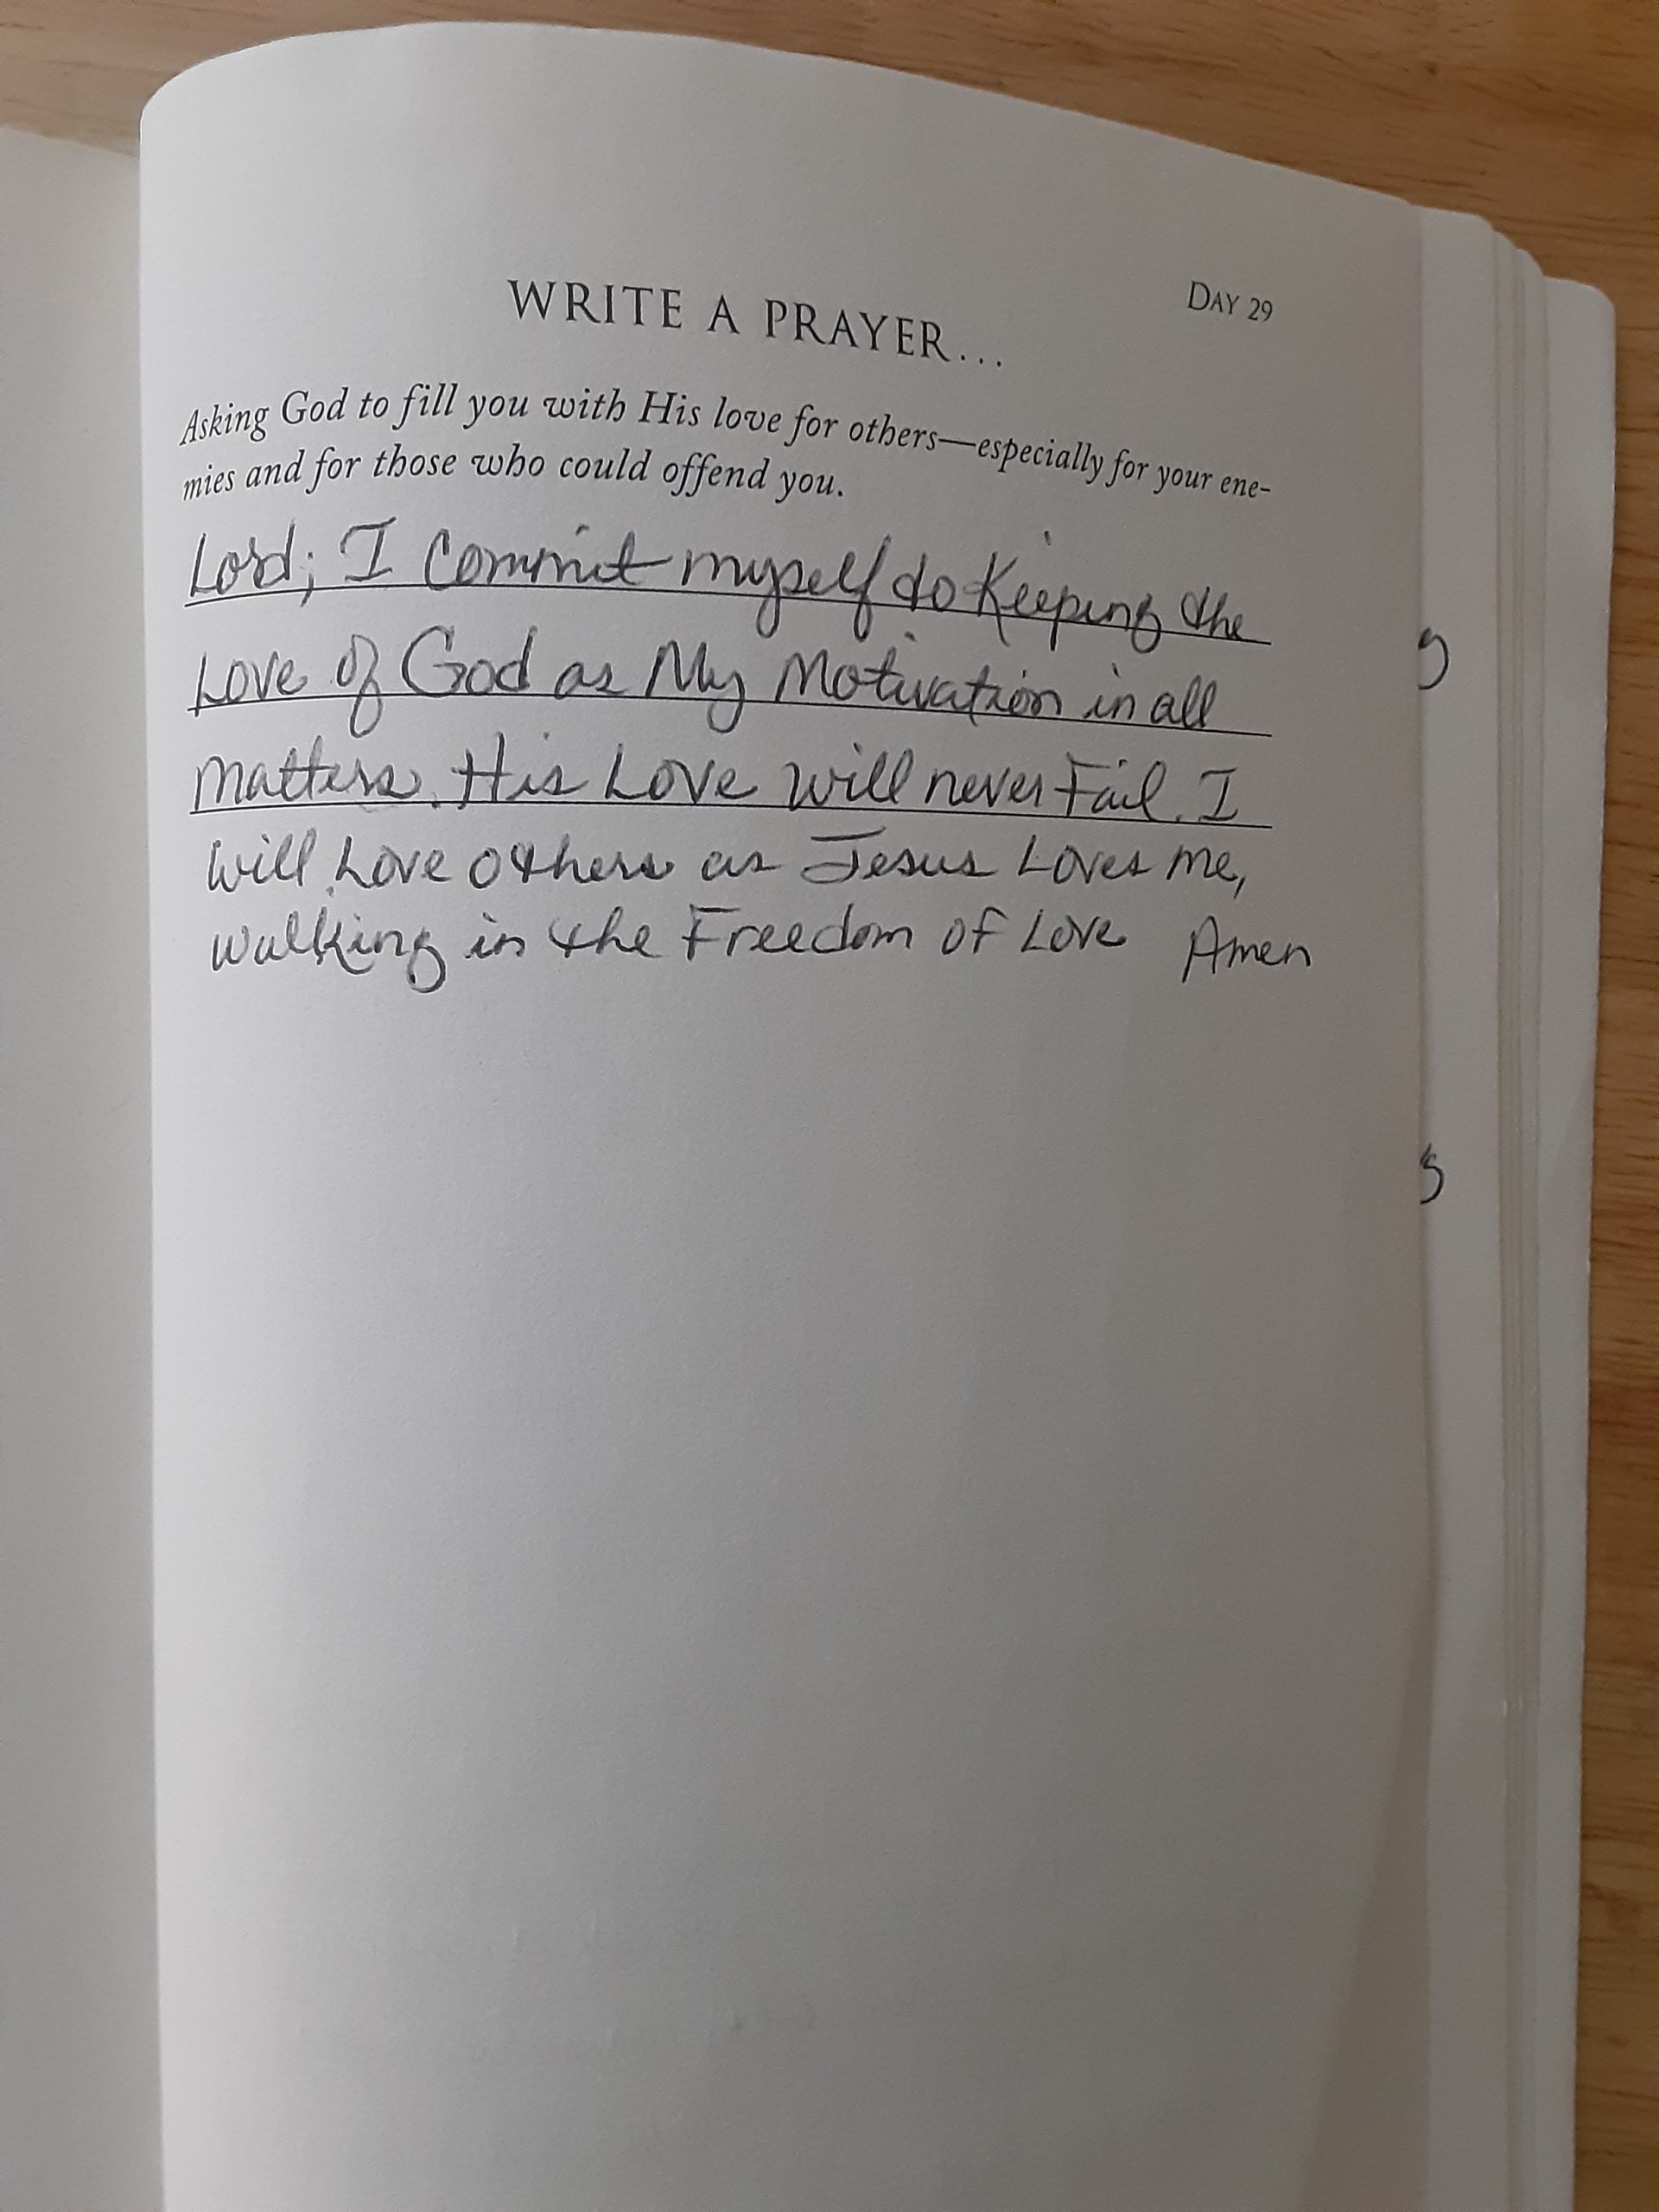 DAY 29
WRITE A PRAYER...
Asking God to fill you with His love for others—especially for your ene-
mies and for those who could offend you.
Lord; I Commit myself to Keeping the
Love of God as My Motivation in all
matters. His Love will never Fail. I
will Love others as Jesus Loves me,
walking in the Freedom of Love Amen